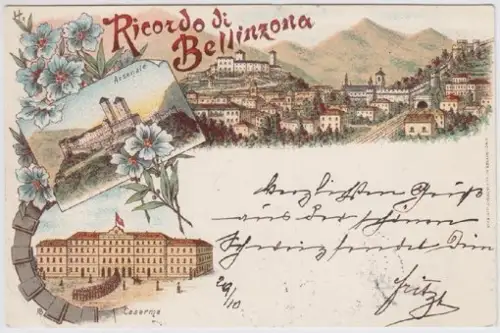 Ricordo di
Bellinzona
Arsenale
Herzlichen Gruß
aus der schönen
Schweiz sendet Dir
Fritz
29/10
Caserma